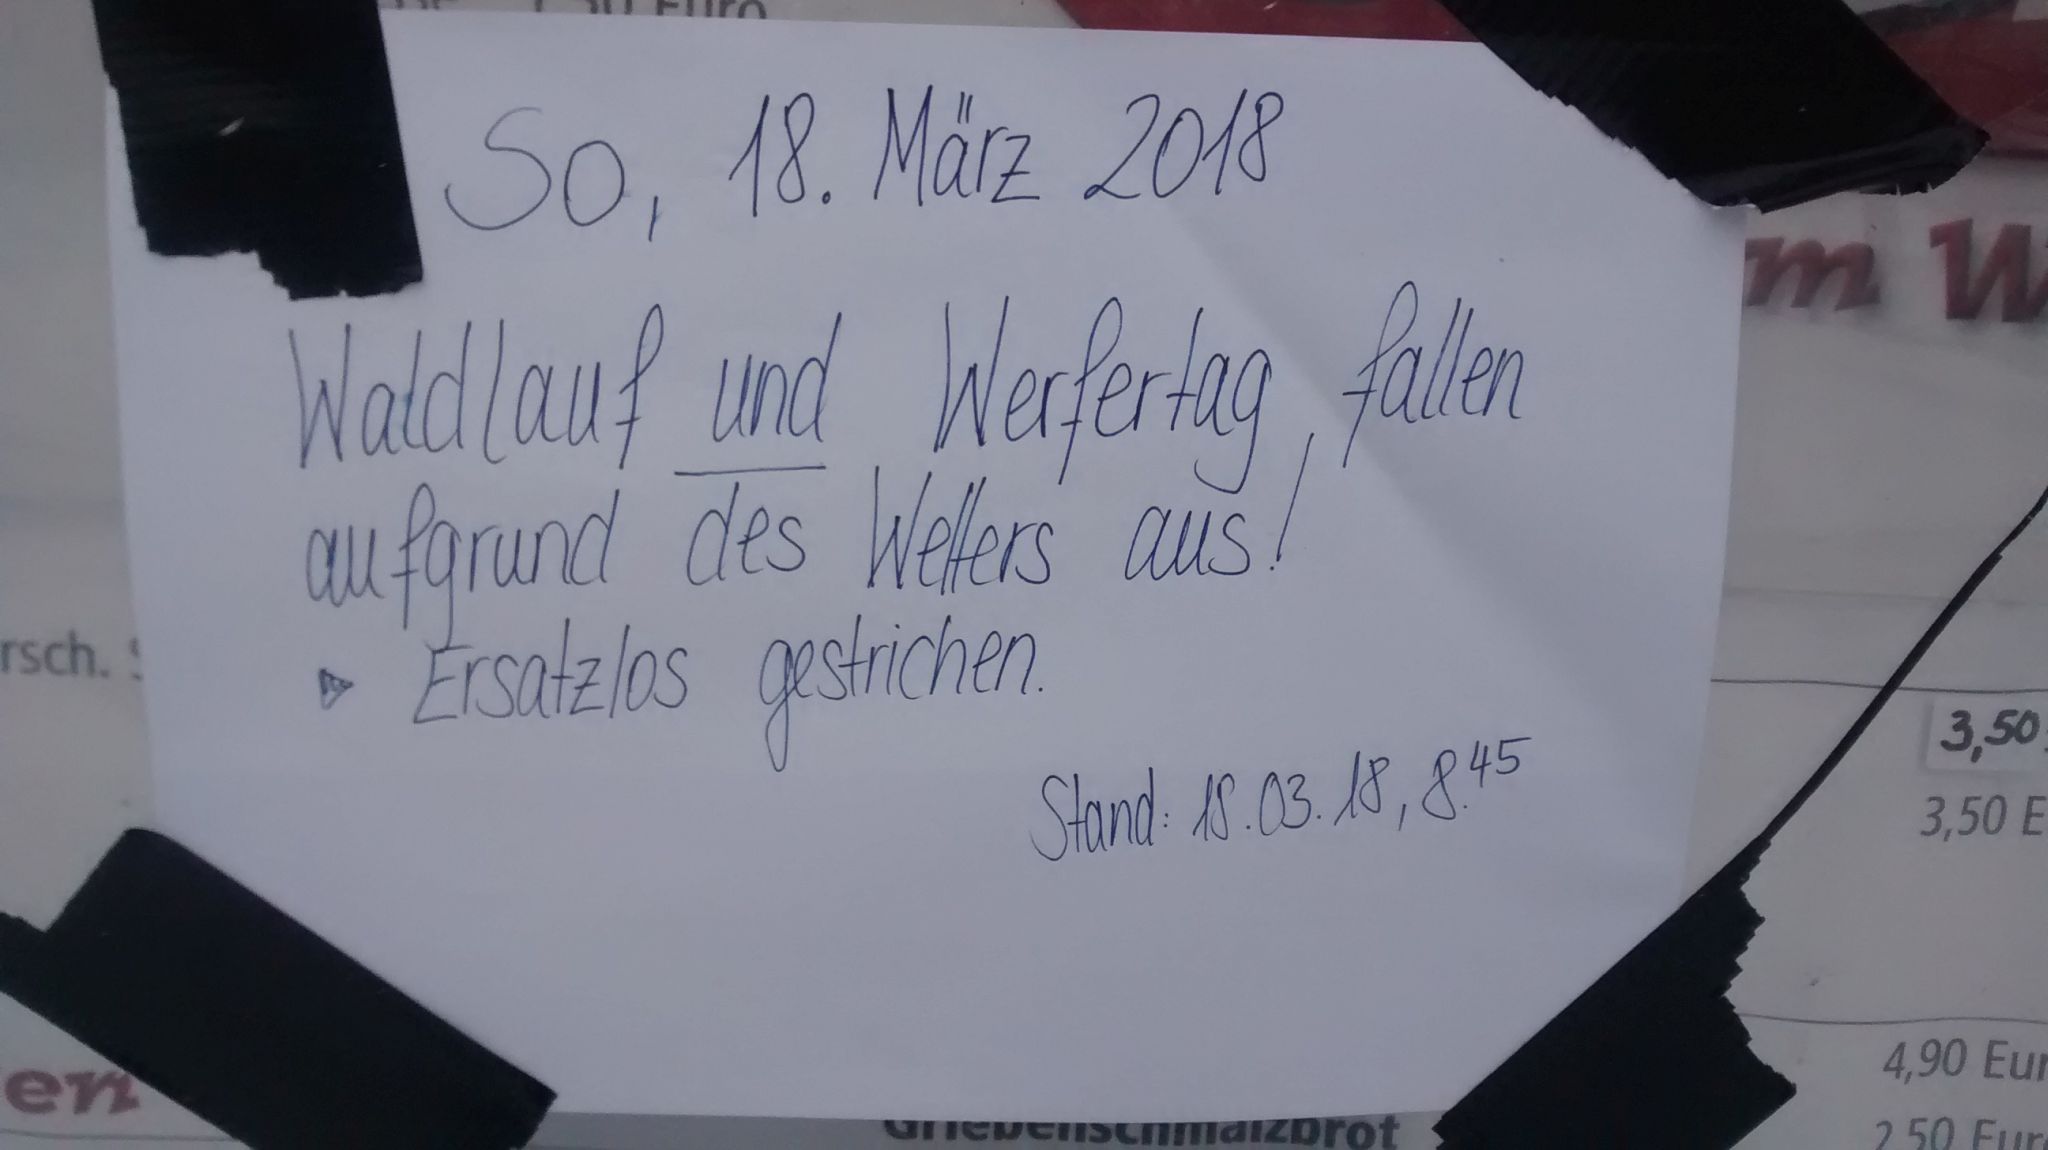 7,50 Euro
So, 18. März 2018
m W
Waldlauf und Werfertag, fallen
aufgrund des Wetters aus!
rsch.
▹ Ersatzlos gestrichen.
3,50
Stand: 18.03.18, 8.45
3,50 E
4,90 Eur
en
Griebenschmalzbrot
2,50 Euro